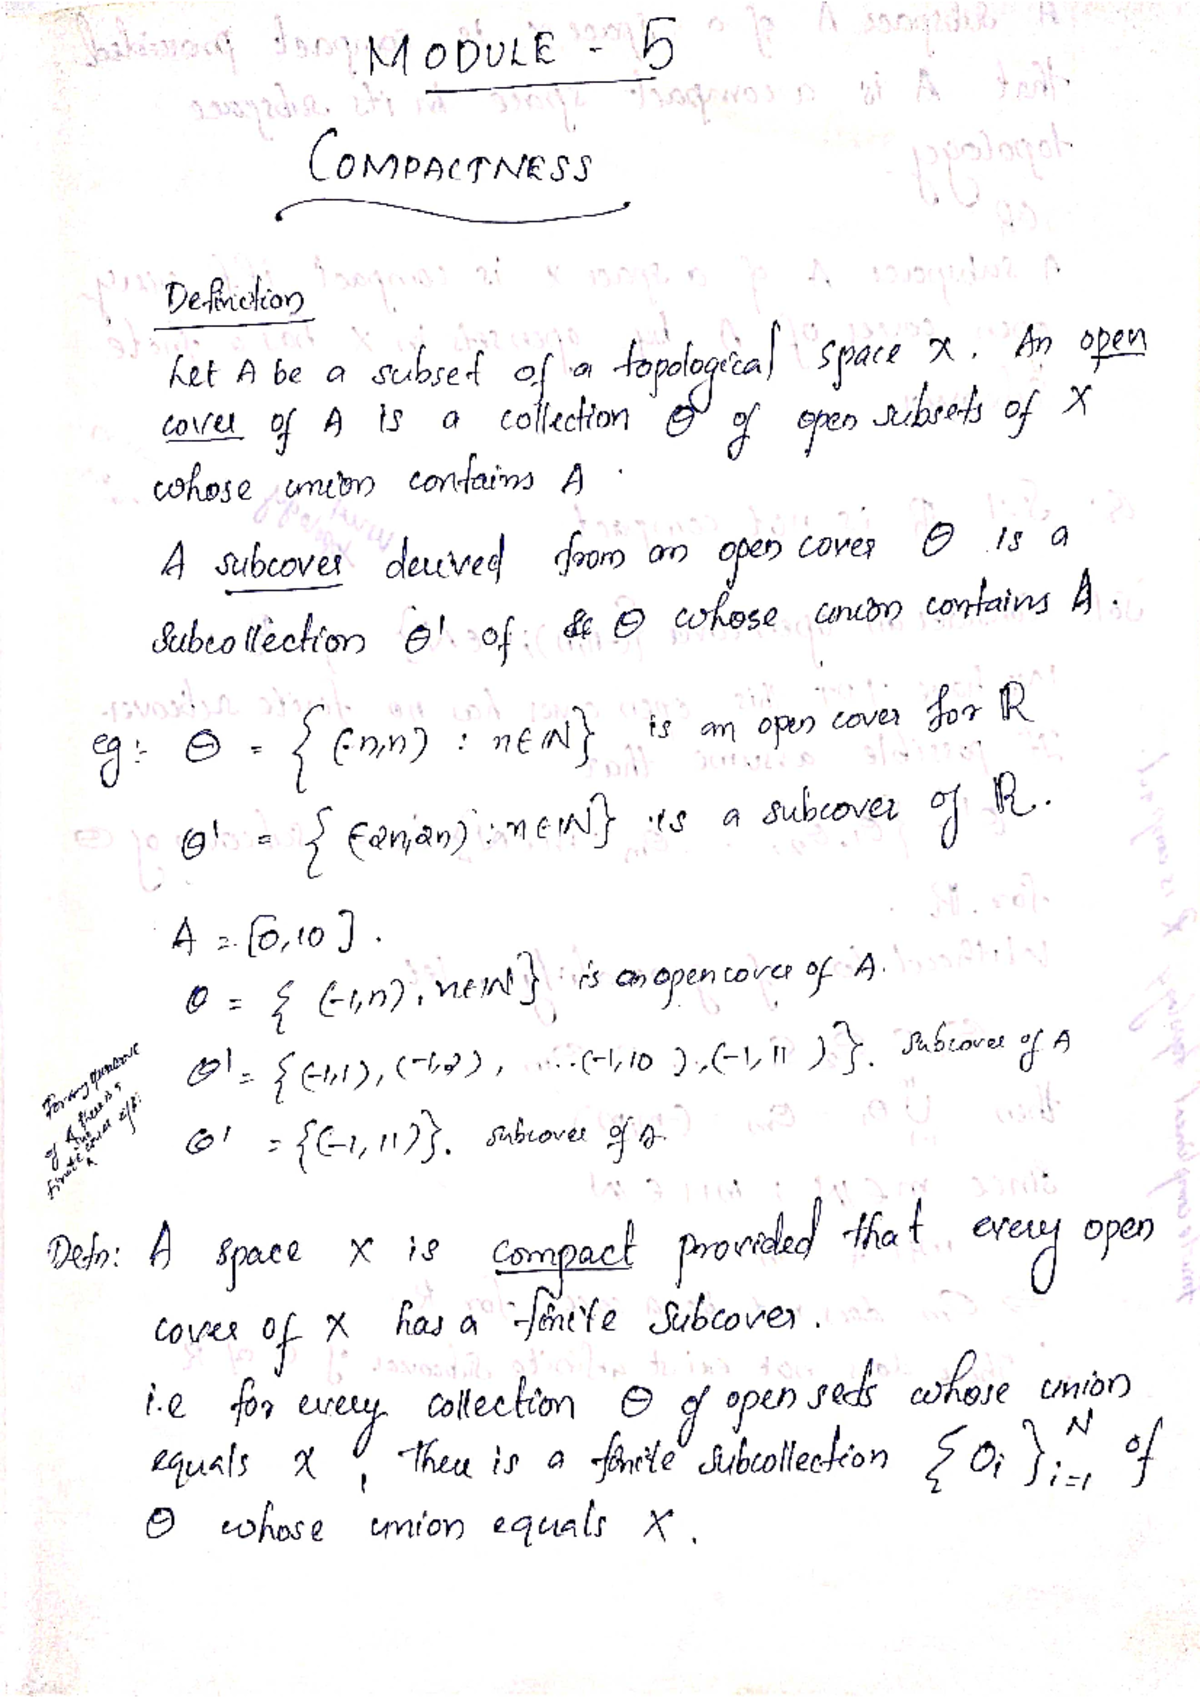 MODULE - 5
COMPACTNESS
Definition
Let A be a subset of a topological space X. An open
cover of A is a collection Θ of open subsets of X
whose union contains A.
A subcover derived from an open cover Θ is a
subcollection Θ' of Θ whose union contains A.
eg:- Θ = { (-n,n) : n∈ℕ} is an open cover for ℝ
Θ' = { (-2n,2n) : n∈ℕ} is a subcover of ℝ.
A = [0,10].
Θ = { (-1,n), n∈ℕ} is an open cover of A.
Θ' = {(-1,1), (-1,2), ....(-1,10), (-1,11)}. subcover of A
Θ' = {(-1,11)}. subcover of A.
For any open cover
of A there is a
finite
Defn: A space X is compact provided that every open
cover of X has a finite subcover.
i.e for every collection Θ of open sets whose union
equals X, there is a finite subcollection {Oi}ᴺi=1 of
Θ whose union equals X.